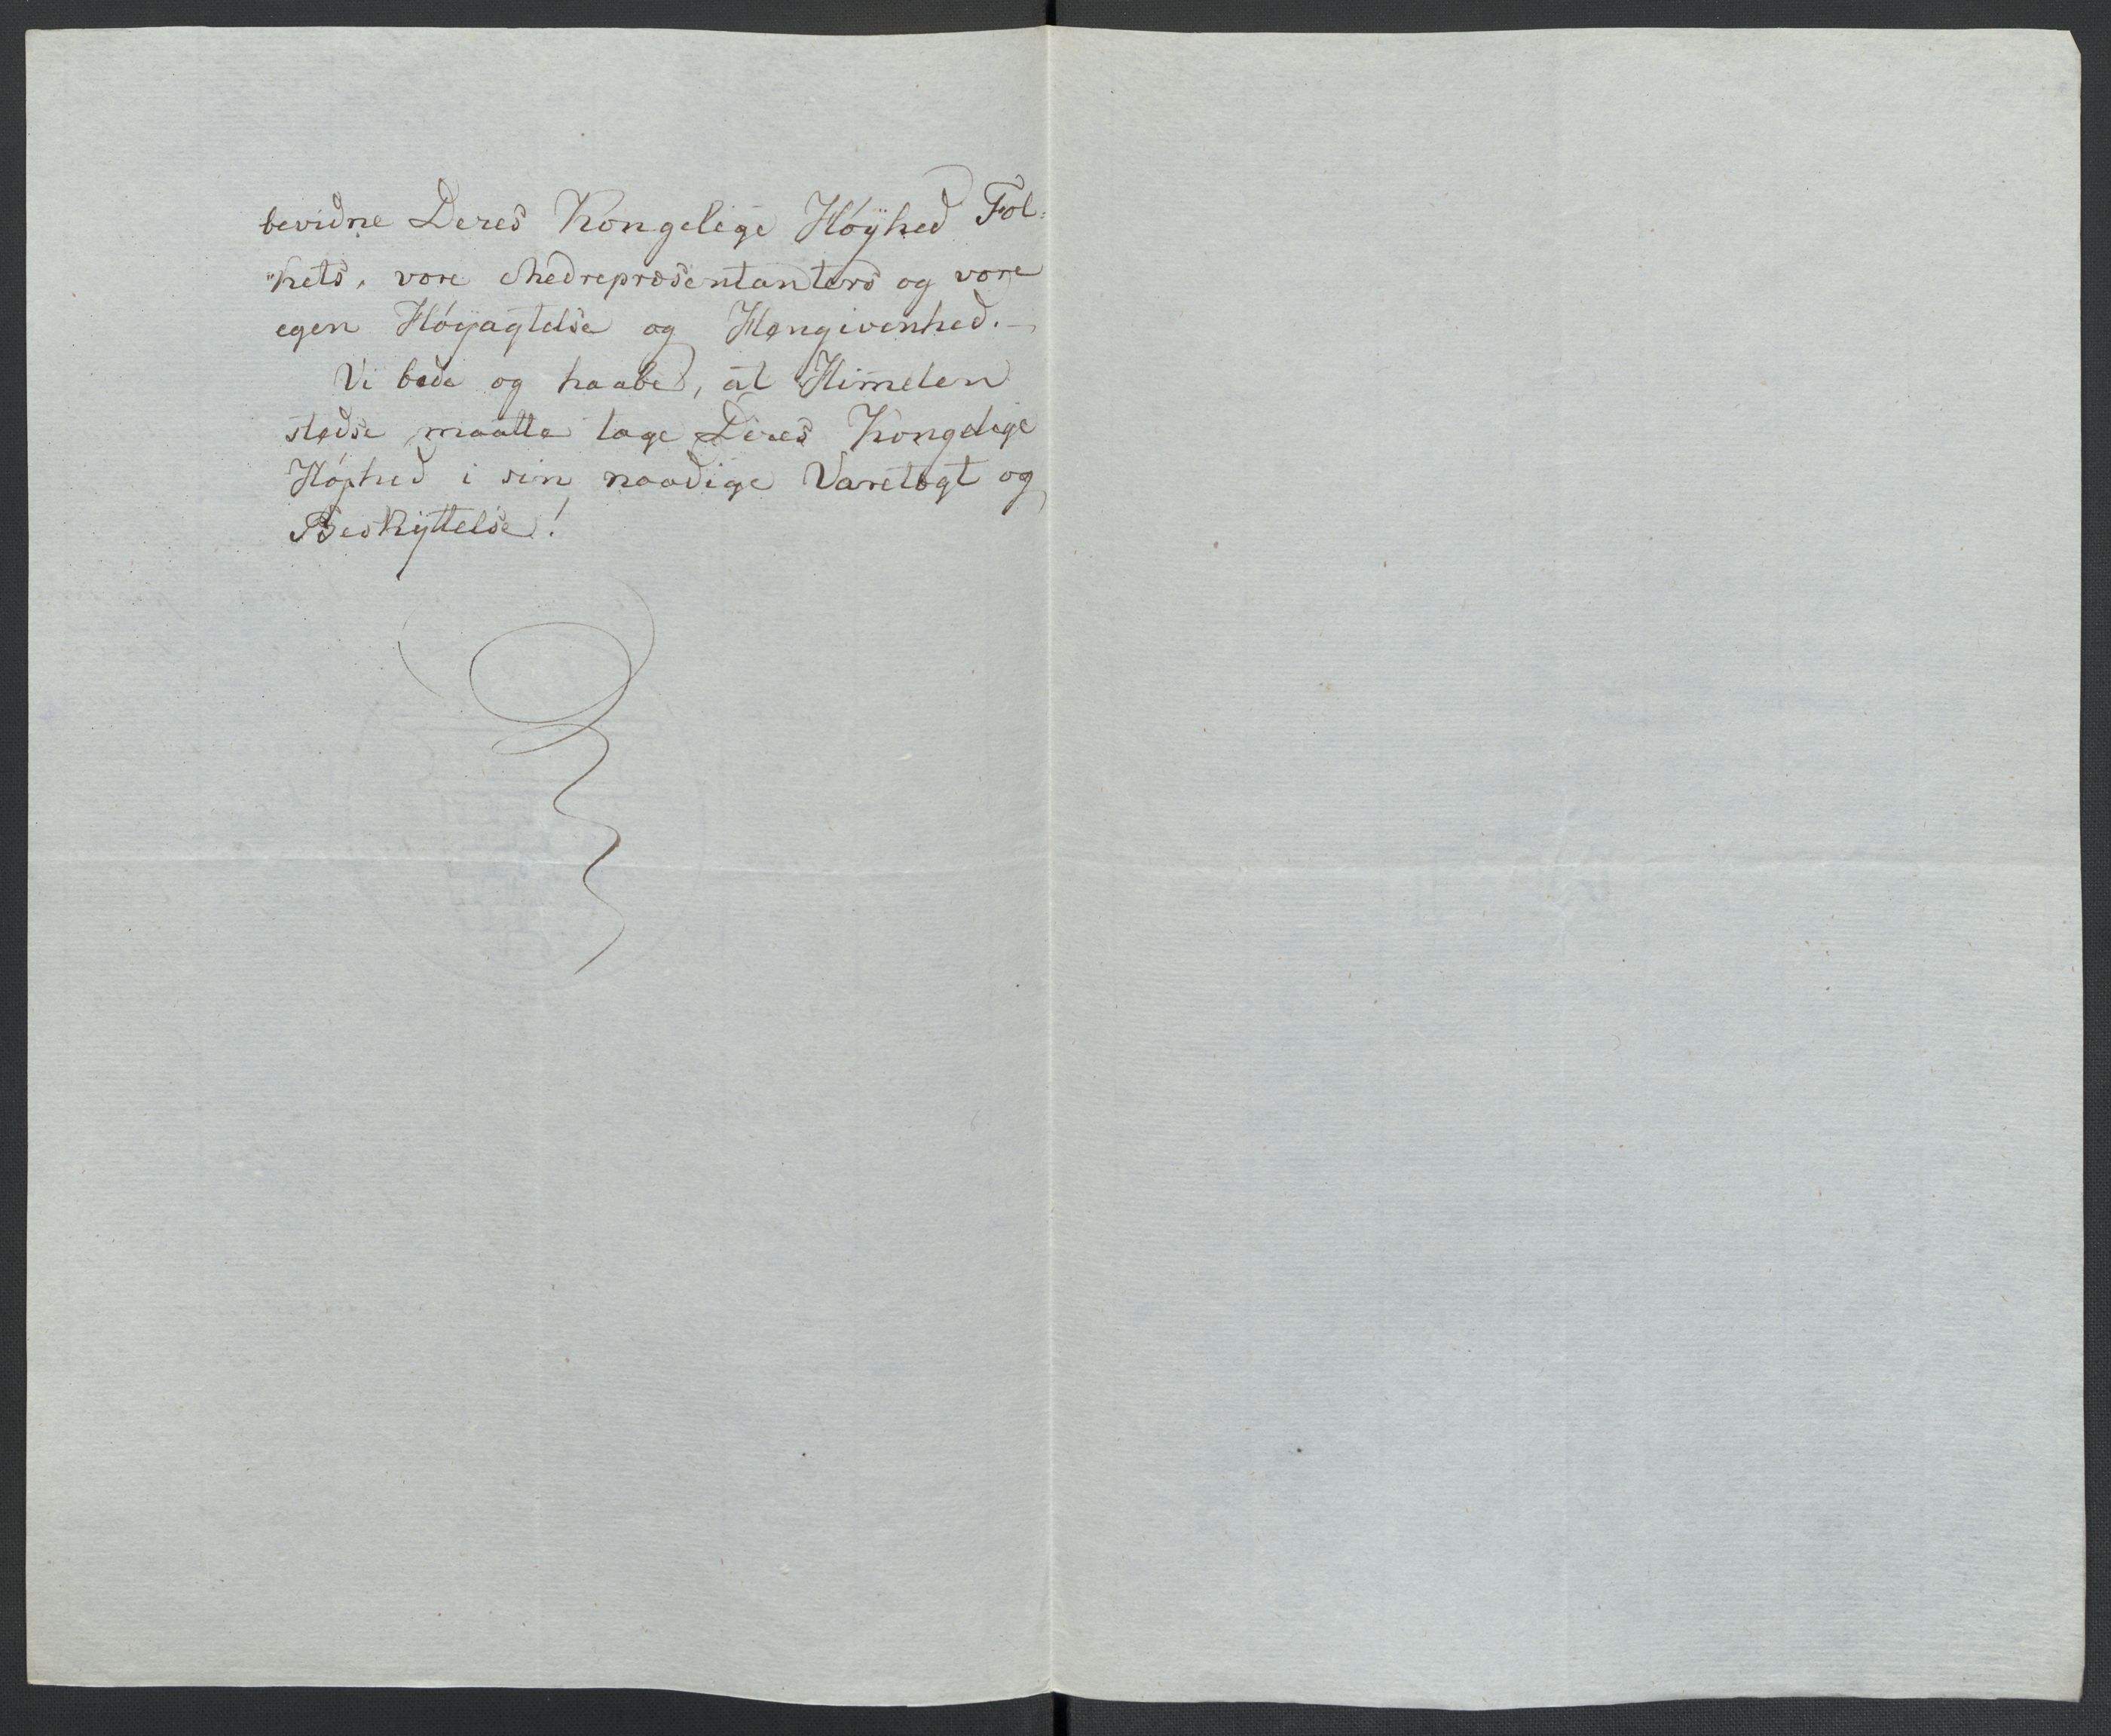 bevidne Deres Kongelige Høÿhed Fol-
"kets, vore Medrepræsentanters og vore
egen Høÿagtelse og Hengivenhed.-
Vi bede og haabe, at Himelen
stedse maatte tage Deres Kongelige
Høÿhed i sin naadige Varetægt og
Beskÿttelse!